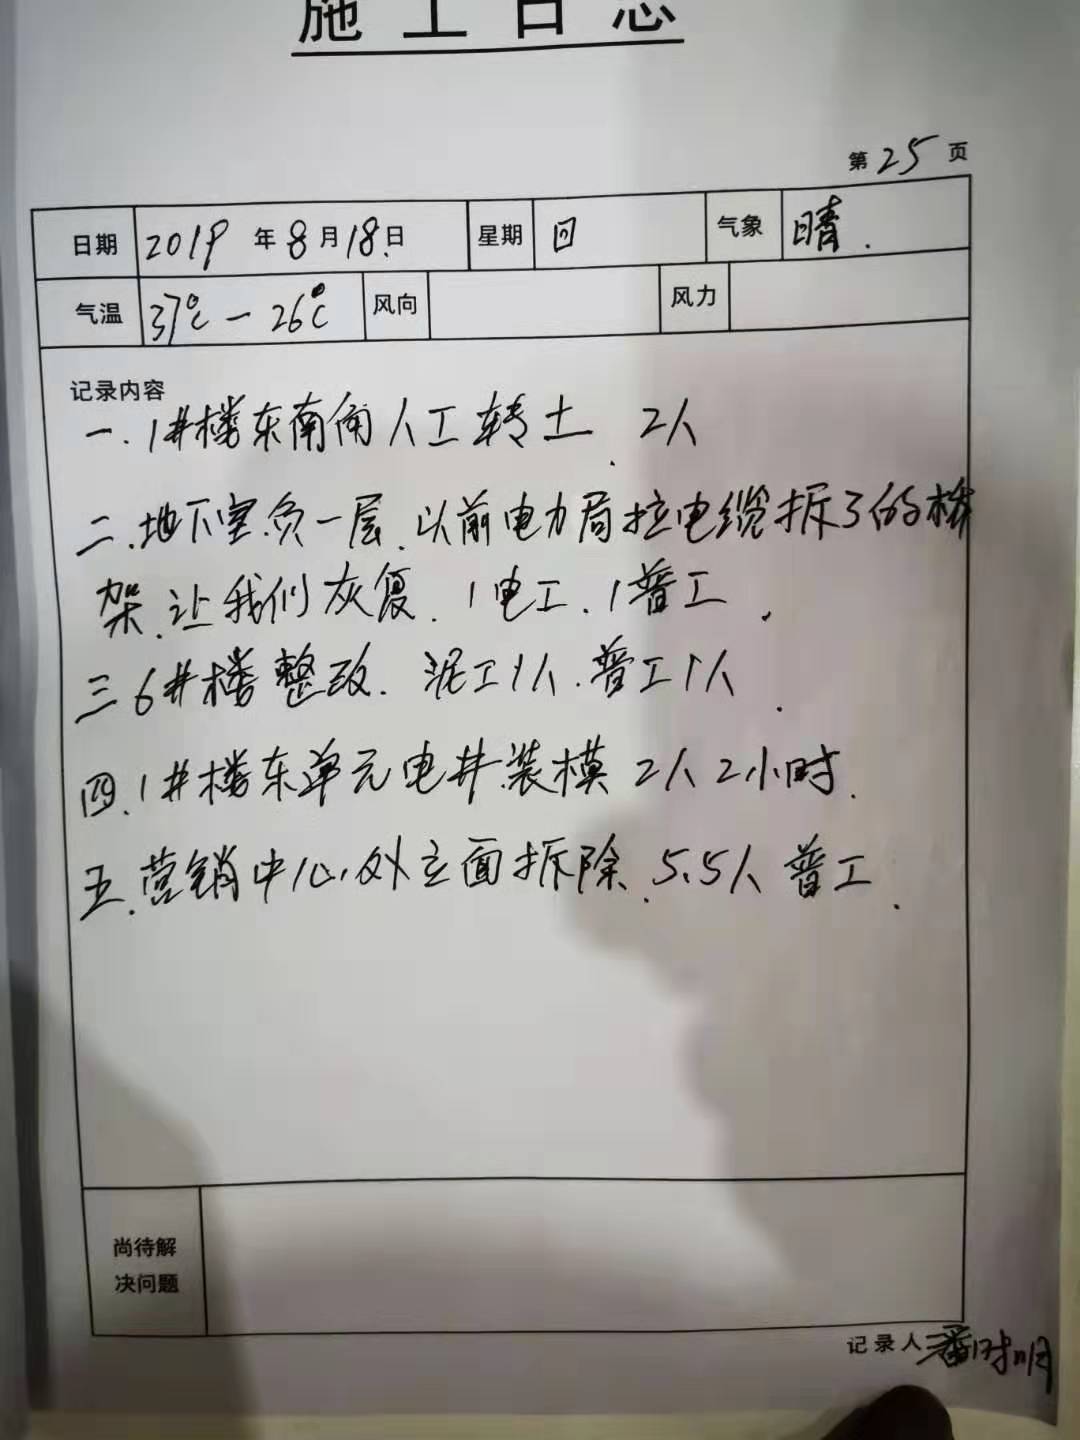 施工日志
第25页
日期 2019年8月18.日 星期 回 气象 晴.
气温 37℃-26℃ 风向 风力
记录内容
一.1#楼东南角人工转土.2人
二.地下室负一层.以前电力局拉电缆拆了的桥
架.让我们灰复.1电工.1普工.
三6#楼整改.泥工1人.普工1人.
四.1#楼东单元电井装模2人2小时.
五.营销中心外立面拆除.5.5人普工.
尚待解
决问题
记录人 潘时明